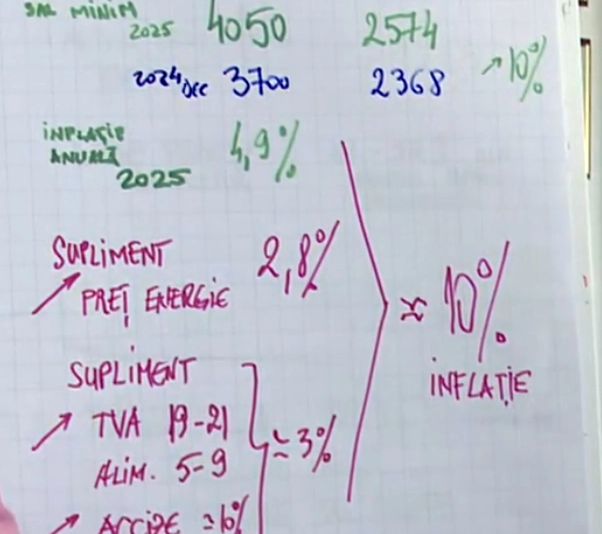 SAL MINIM
2025 4050 2574
2024 DEC 3700 2368 ↗10%
INFLAȚIE
ANUALĂ 4,9%
2025
SUPLIMENT 2,8%
↗ PREȚ ENERGIE
≈ 10%
INFLAȚIE
SUPLIMENT
↗ TVA 19-21
≃ 3%
ALIM. 5-9
↗ ACCIZE